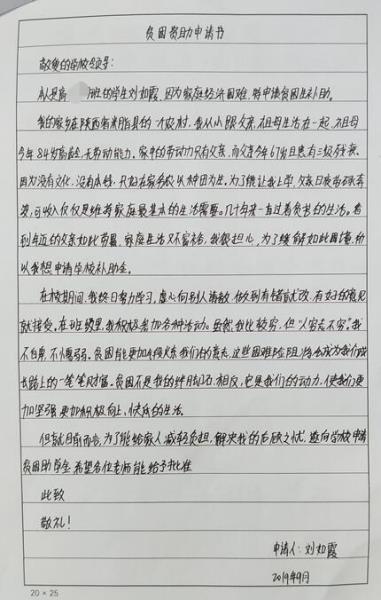 贫困资助申请书
敬爱的学校领导:
我是高 班的学生刘如霞,因为家庭经济困难,特申请贫困生补助。
我的家乡在陕西省米脂县的一个农村,我从小跟父亲、祖母生活在一起,祖母
今年84岁高龄,无劳动能力。家中的劳动力只有父亲,而父亲今年67岁且患有三级残疾,
因为没有文化,没有本钱,只好在家务农以种田为生。为了能让我上学,父亲日夜
,可收入仅仅是维持家庭最基本的生活需要。几十年来一直过着贫苦的生活。看
到年迈的父亲如此劳累,家庭生活又不富裕,我很担心,为了缓解如此困境,所
以我想申请学校补助金。
在校期间,我终日努力学习,虚心向别人请教,做到有错就改,有好的意见
就接受。在班级里,我积极参加各种活动。虽然,我比较穷,但“人穷志不穷”。我
不自卑,不懦弱。贫困能更加锻炼我们的意志,这些困难险阻将会成为我们成
长路上的一笔笔财富。贫困不是我的绊脚石,相反,它是我们的动力,使我们更
加坚强,更加积极向上,快乐的生活。
但就目前而言,为了能给家人减轻负担,解决我的后顾之忧,遂向学校申请
贫困助学金,希望各位老师能给予批准
此致
敬礼!
申请人:刘如霞
2019年9月
20×25